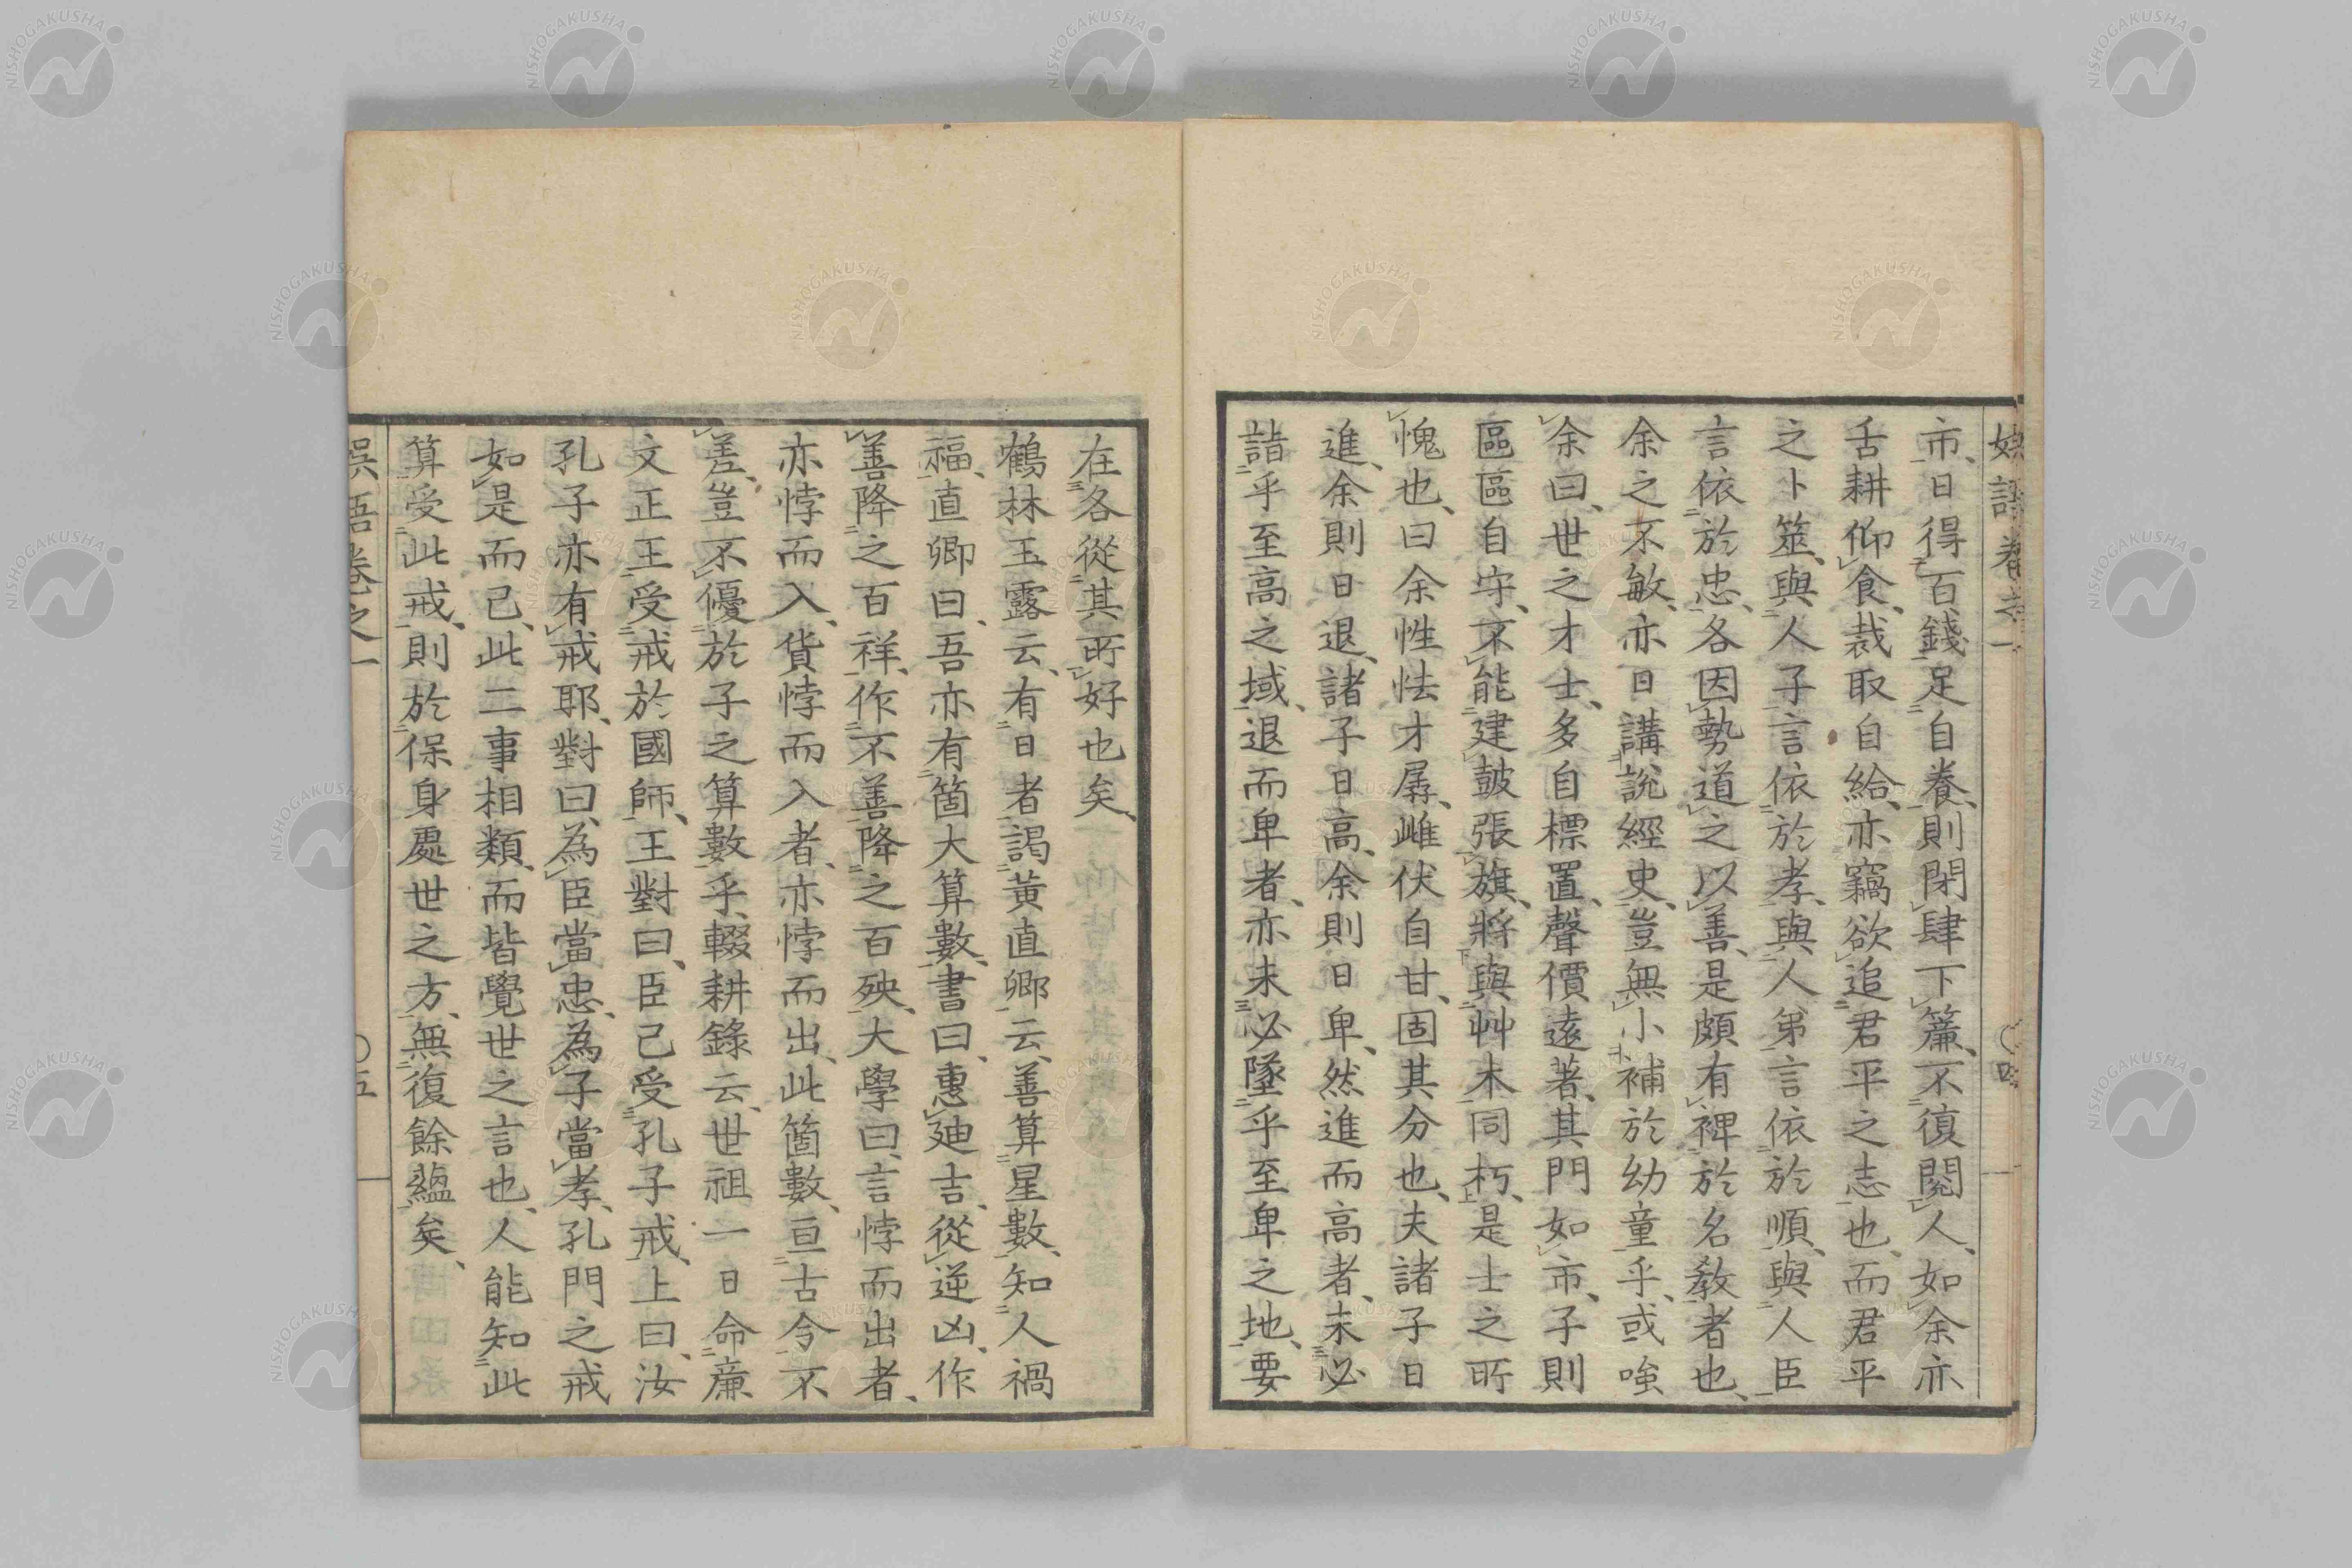 娯語卷之一 〇四
市、日得百錢足自養、則閉肆下簾、不復閱人、如余亦
舌耕仰食、裁取自給、亦竊欲追君平之志也、而君平
之卜筮、與人子言依於孝、與人弟言依於順、與人臣
言依於忠、各因勢道之以善、是頗有裨於名教者也、
余之不敏、亦日講說經史、豈無小補於幼童乎、或嗤
余曰、世之才士、多自標置、聲價遠著、其門如市、子則
區區自守、不能建皷張旗、將與艸木同朽、是士之所
愧也、曰余性怯才孱、雌伏自甘、固其分也、夫諸子日
進、余則日退、諸子日高、余則日卑、然進而高者、未必
詣乎至高之域、退而卑者、亦未必墜乎至卑之地、要
在各從其所好也矣、
鶴林玉露云、有日者謁黃直卿云、善算星數、知人禍
福、直卿曰、吾亦有箇大算數、書曰、惠迪吉、從逆凶、作
善降之百祥、作不善降之百殃、大學曰、言悖而出者、
亦悖而入、貨悖而入者、亦悖而出、此箇數、亘古今不
差、豈不優於子之算數乎、輟耕錄云、世祖一日命廉
文正王受戒於國師、王對曰、臣己受孔子戒、上曰、汝
孔子亦有戒耶、對曰、為臣當忠、為子當孝、孔門之戒
如是而己、此二事相類、而皆覺世之言也、人能知此
算受此戒、則於保身處世之方、無復餘蘊矣、
娯語卷之一 〇五
NISHOGAKUSHA